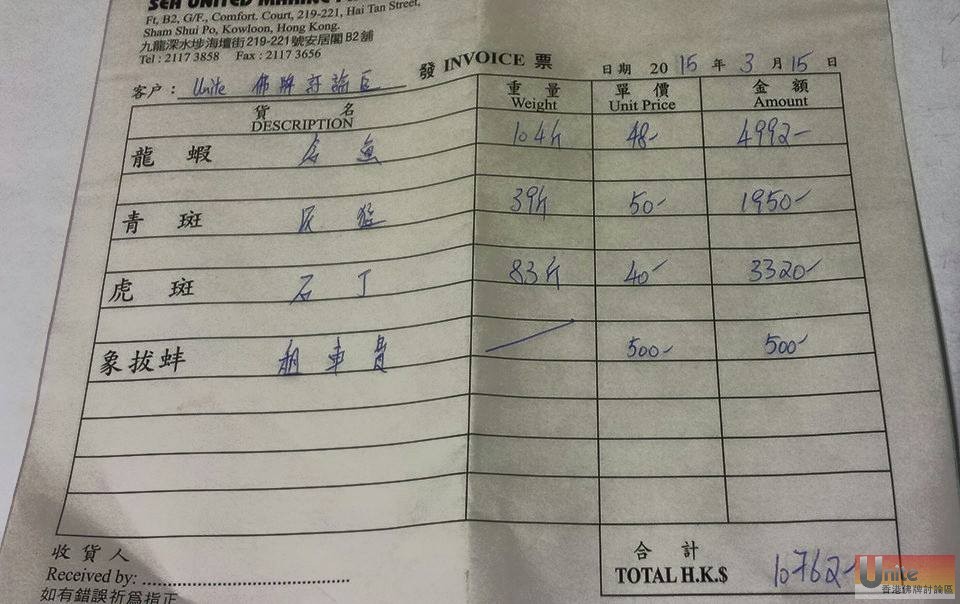 SEA UNITED MARINE
Ft, B2, G/F., Comfort. Court, 219-221, Hai Tan Street,
Sham Shui Po, Kowloon, Hong Kong.
九龍深水埗海壇街219-221號安居閣B2舖
Tel : 2117 3858 Fax : 2117 3656
發 INVOICE 票
日期 2015 年 3 月 15 日
客户 : Unite 佛牌討論區
貨名 重量 單價 金額
DESCRIPTION Weight Unit Price Amount
龍蝦 魚 104斤 48- 4992-
青斑 39斤 50- 1950-
虎斑 石丁 83斤 40- 3320-
象拔蚌 租車費 500- 500-
收貨人 合計
Received by: TOTAL H.K.$ 10762-
如有錯誤祈為指正
Unite
香港佛牌討論區